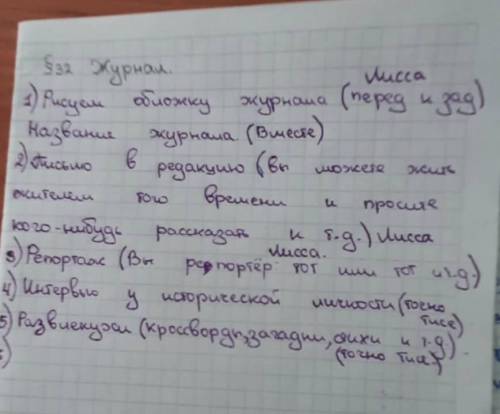 §32 Журнал.
Лисса
1) Рисуем обложку журнала (перед и зад)
Название журнала (Вместе)
2) Письмо в редакцию (Вы можете жить
жителем того времени и просите
кого-нибудь рассказать и т.д.) Лисса
3) Репортаж (Вы репортёр тот или тот и т.д.)
Лисса.
4) Интервью у исторической личности (точно
тиса)
5) Развлекухи (кроссворды, загадки, стихи и т.д).
(точно тиса)